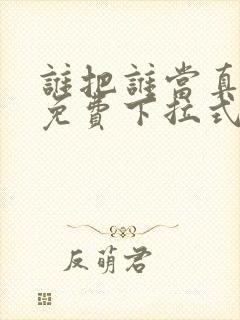 誰把誰當真
免費下拉式
反萌君